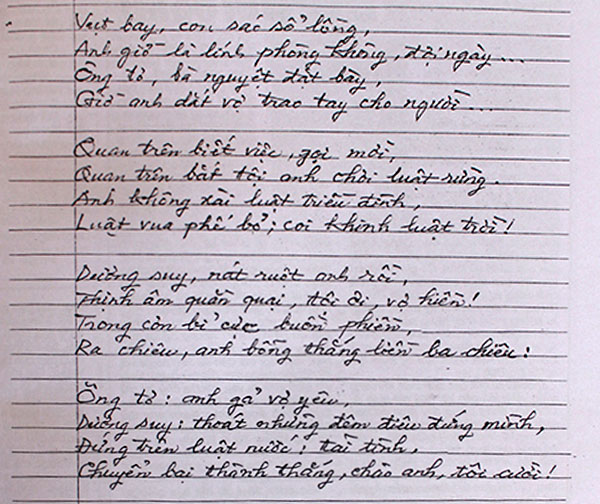 Vụt bay, con sáo sổ lồng,
Anh giờ là lính phòng không, đợi ngày...
Ông tơ, bà nguyệt đặt bày,
Giờ anh dắt vợ trao tay cho người...
Quan trên biết việc, gọi mời,
Quan trên bắt tội anh chơi luật rừng.
Anh không xài luật triều đình,
Luật vua phế bỏ; coi khinh luật trời!
Dương suy, nát ruột anh rồi,
Thịnh âm quằn quại, tội ơi, vợ hiền!
Trong cơn bỉ cực buồn phiền,
Ra chiêu, anh bỗng thắng liền ba chiêu:
Ông tơ: anh gả vợ yêu,
Dương suy: thoát những đêm điêu đứng mình,
Đứng trên luật nước: tài tình,
Chuyển bại thành thắng, chào anh, tôi cười!